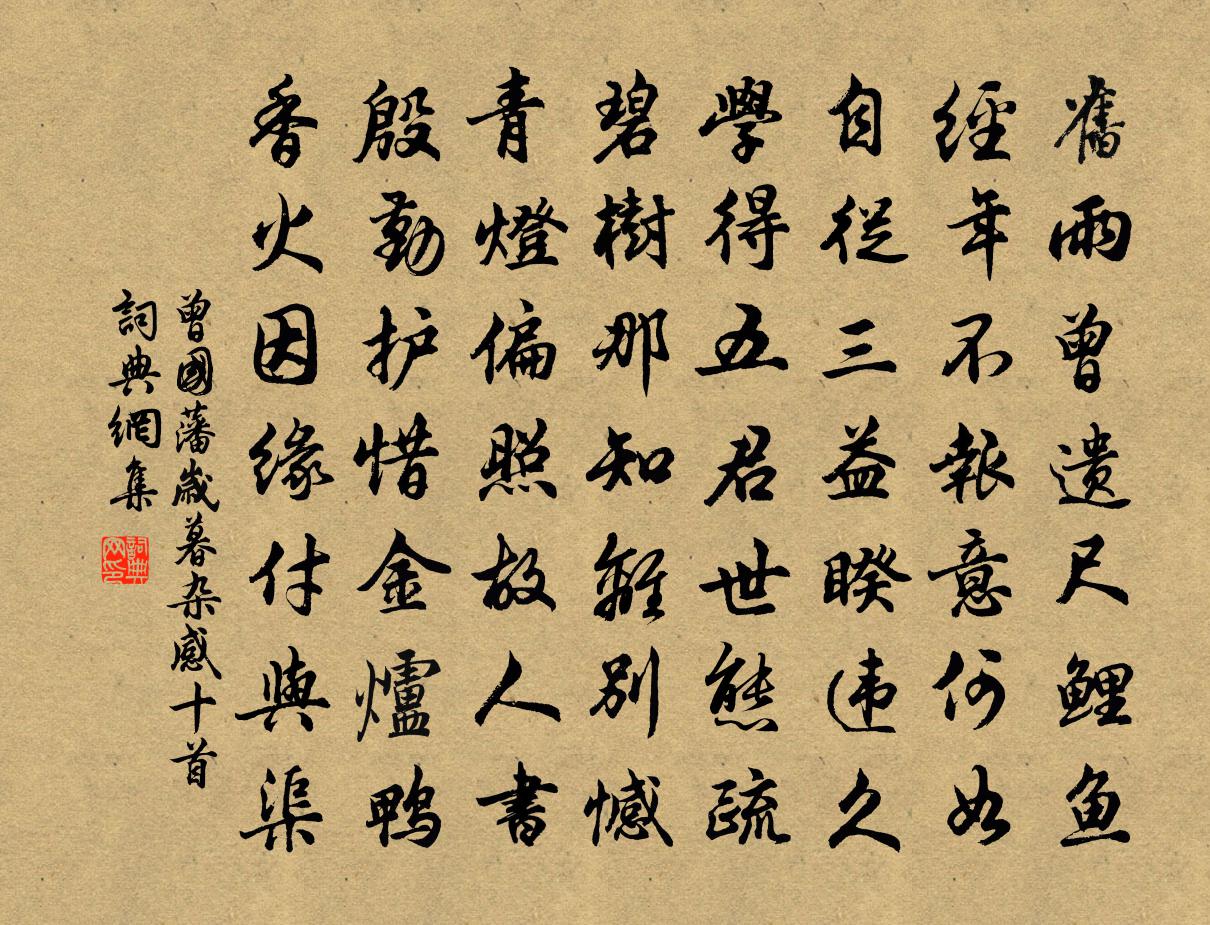 舊雨曾遗尺鲤魚
經年不報意何如
自從三益睽违久
學得五君世態疏
碧樹那知離別憾
青燈偏照故人書
殷勤护惜金爐鸭
香火因緣付與渠
曾國藩歲暮杂感十首
詞典網集
詞典网印